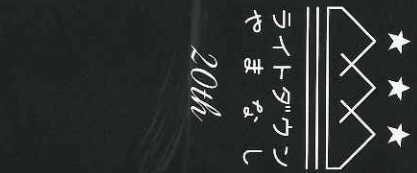 ライトダウン
やまなし
20th